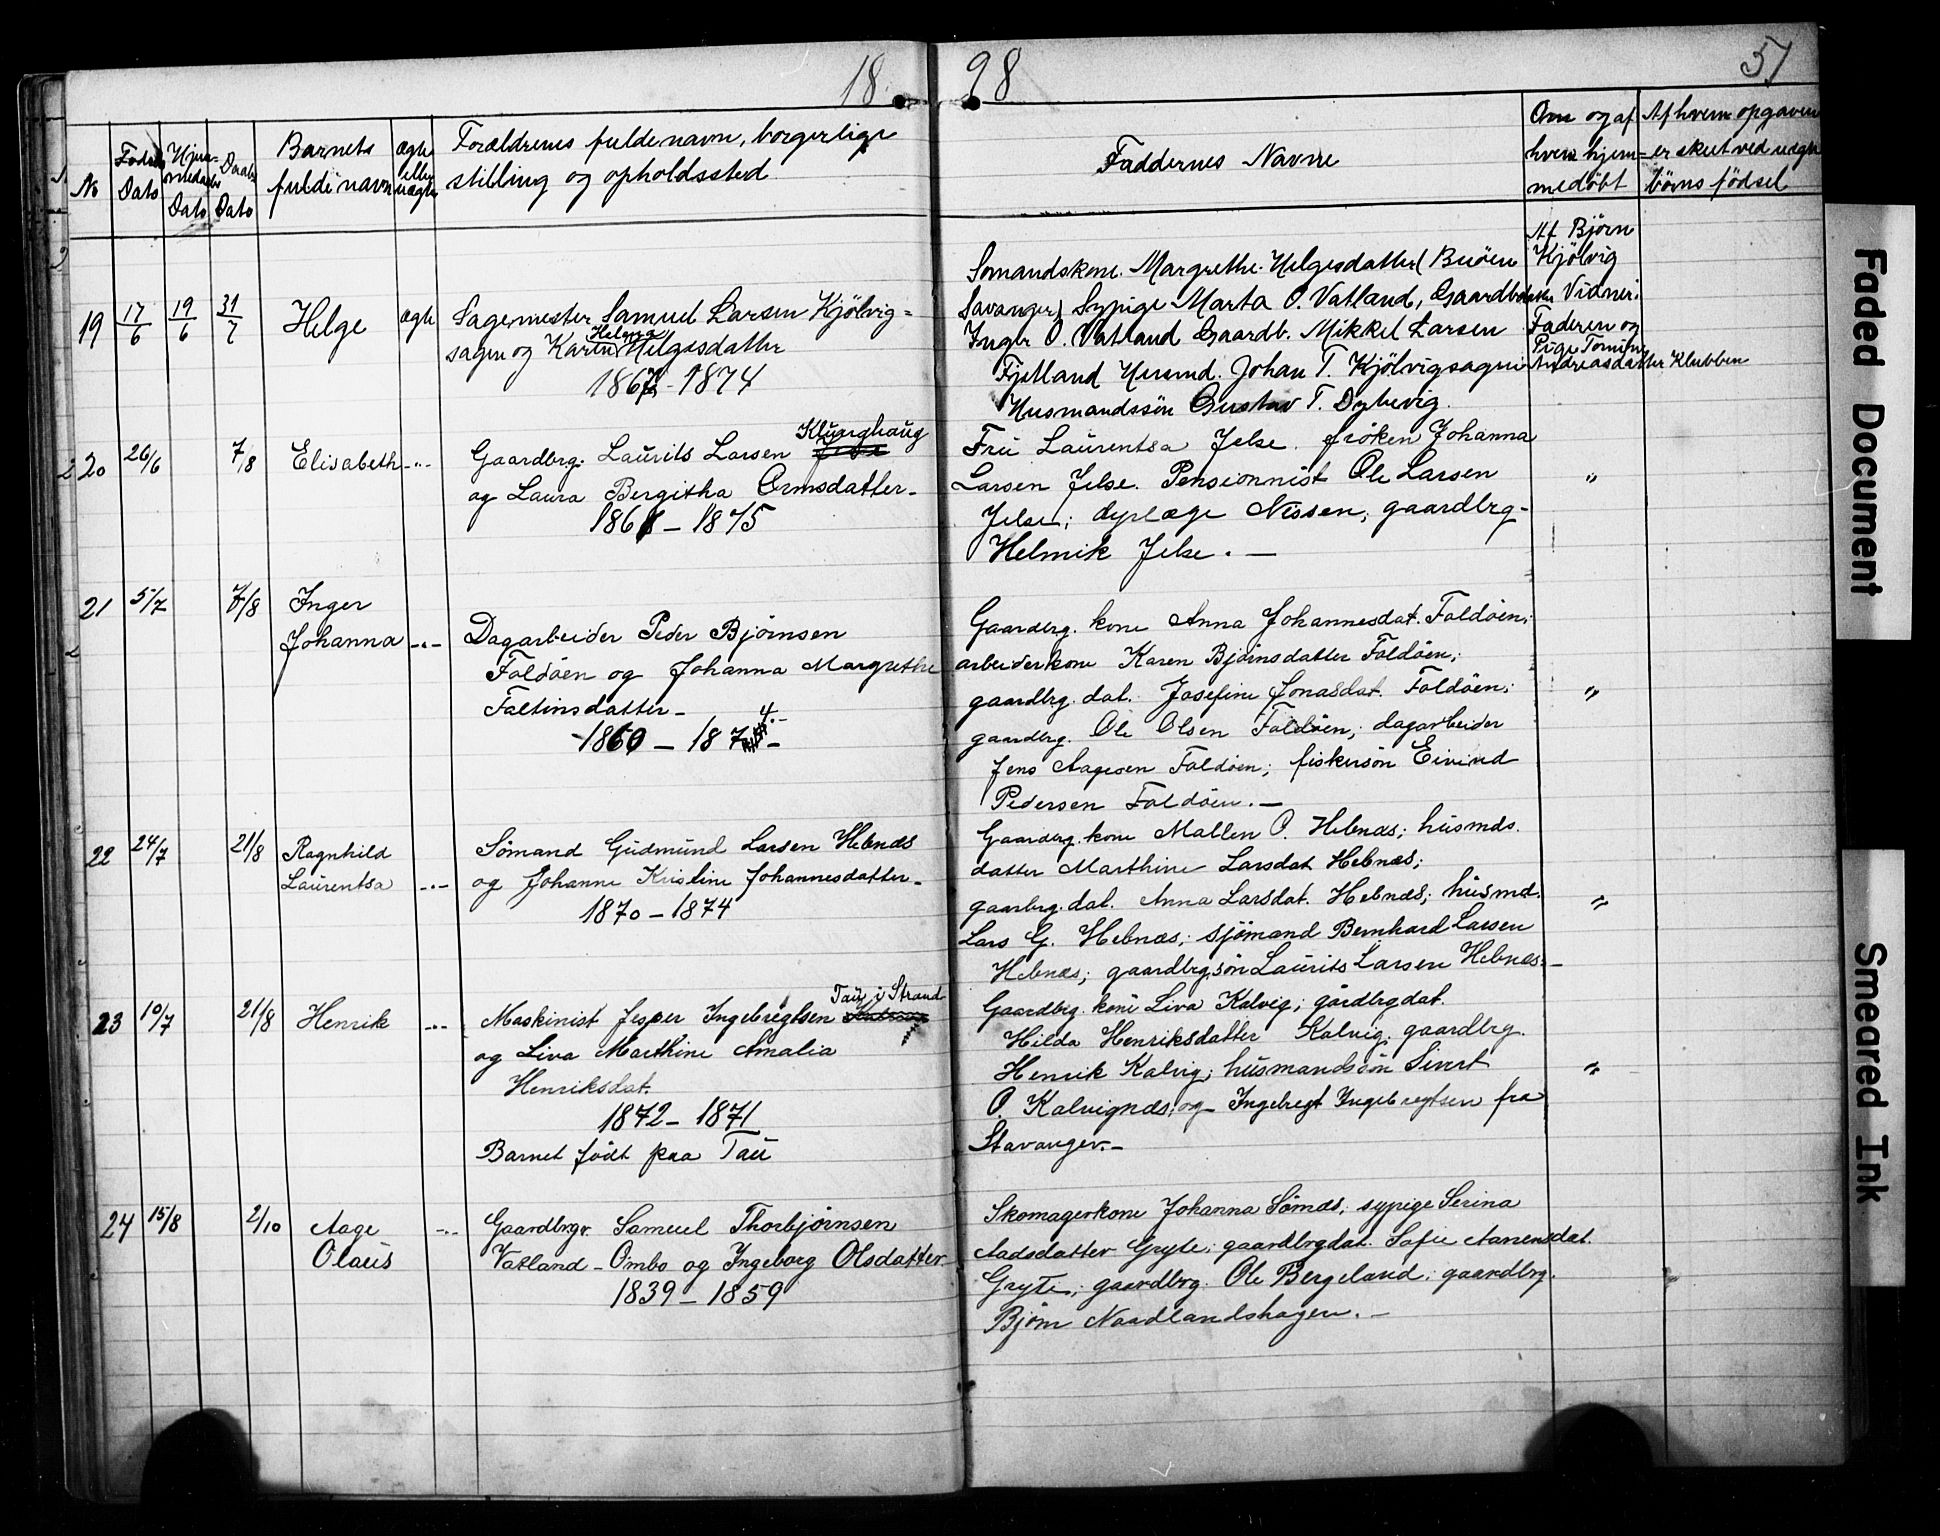 18 98
51
No
Fødsels Dato
Hjemmedøbs Dato
Daabs Dato
Barnets
fulde navn
ægte
eller
uægte
Forældrenes fulde navn, borgerlige
stilling og opholdssted
Faddernes Navne
Om og af
hvem hjem-
medøbt
Af hvem opgaven
er skeet ved uægte
børns födsel
19 17/6 19/6 31/7 Helge ægte
Sagemester Samuel Larsen Kjölvig-
Helene
sagen og Karen Helgesdatter
1867 - 1874
Somandskone. Margrethe Helgesdatter (Buöen
Savanger) Sypige Marta O. Vatland, Gaardb
Inger O. Vatland Gaardb. Mikkel Larsen
Fjetland Husmd. Johan T. Kjölvigsagen
Husmandssön Gustav T. Dybevig.
Af Björn
Kjölvig
Vidner:
Faderen og
Pige Tomine
Andreasdatter Klubben
20 26/6 7/8 Elisabeth -"-
Kluarghaug
Gaardbrg. Laurits Larsen
og Laura Bergitha Ormsdatter-
1868 - 1875
Fru Laurentsa Jelse. fröken Johanna
Larsen Jelse. Pensionnist Ole Larsen
Jelse; dyrlæge Nissen; gaardbrg-
Helmik Jelse. -
"
21 5/7 7/8 Inger
Johanna -"-
Dagarbeider Peder Björnsen
Foldöen og Johanna Margrethe
Faltinsdatter-
4.-
-1860 - 187
Gaardbrg. kone Anna Johannesdat. Foldöen;
arbeiderkone Karen Björnsdatter Foldöen;
gaardbrg. dat. Josefine Jonasdat. Foldöen;
gaardbrg. Ole Olsen Foldöen; dagarbeider
Jens Aagesen Foldöen; fiskersön Eivind
Pedersen Foldöen. -
"
22 24/7 21/8 Ragnhild
Laurentsa -"-
Sömand Gudmund Larsen Hebnæs
og Johanne Kristine Johannesdatter-
1870 - 1874
Gaardbrg. kone Mallen O. Hebnæs; husmds.
datter Marthine Larsdat Hebnæs;
gaarbrg. dat. Anna Larsdat. Hebnæs; husmd.
Lars G. Hebnæs; sjömand Bernhard Larsen
Hebnæs; gaardbrg.sön Laurits Larsen Hebnæs.-
"
23 10/7 21/8 Henrik -"-
Tau i Strand
Maskinist Jesper Ingebregtsen
og Liva Marthine Amalia
Henriksdat.
1872 - 1871
Barnet födt paa Tau
Gaardbrg. kone Liva Kalvig; gårdbrg dat.
Hilda Henriksdatter Kalvig; gaardbrg.
Henrik Kalvig; husmandssön Sivert
O. Kalvignæs; og Ingebregt Ingebregtsen fra
Stavanger.-
"
24 15/8 2/10 Aage
Olaus -"-
Gaardbrgr. Samuel Thorbjörnsen
Vatland - Ombo og Ingeborg Olsdatter
1839 - 1859
Skomagerkone Johanna Sömæs; sypige Serina
Aadsdatter Gryte; gaardbrgdat. Sofie Aanensdat.
Gryte; gaardbrg. Ole Bergeland; gaardbrg.
Björn Naadlandshagen. -
"
Faded Document
Smeared Ink